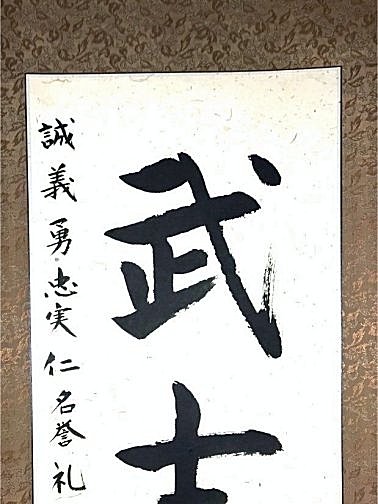 武士
誠義勇忠実仁名誉礼